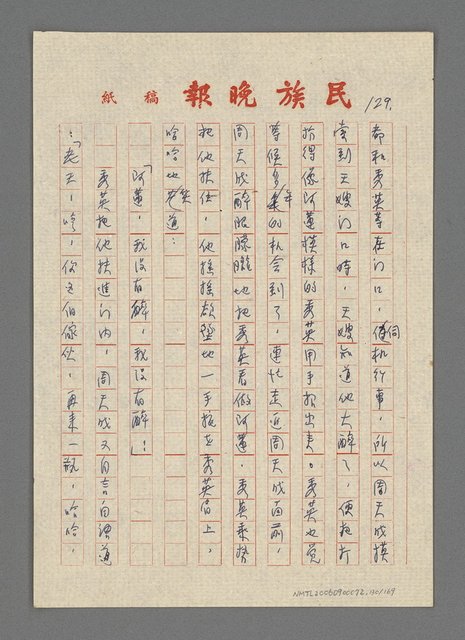 民族晚報 稿紙
129.
都和秀英等在門口，伺機行事，所以周天成摸
索到天嫂門口時，天嫂知道他大醉了，便把打
扮得像阿蓮模樣的秀英用手招出來。秀英也覺
等候多年的機會到了，連忙走近周天成面前，
周天成醉眼朦朧地把秀英看做阿蓮，秀英乘勢
把他扶住，他搖搖顛墜地一手抱在秀英肩上，
哈哈地笑道：
「阿蓮，我沒有醉，我沒有醉！」
秀英把他扶進門內，周天成又自言自語道
：「老天，哈，你這個傢伙，再來一瓶，哈哈，
NMTL20060900072,130/169